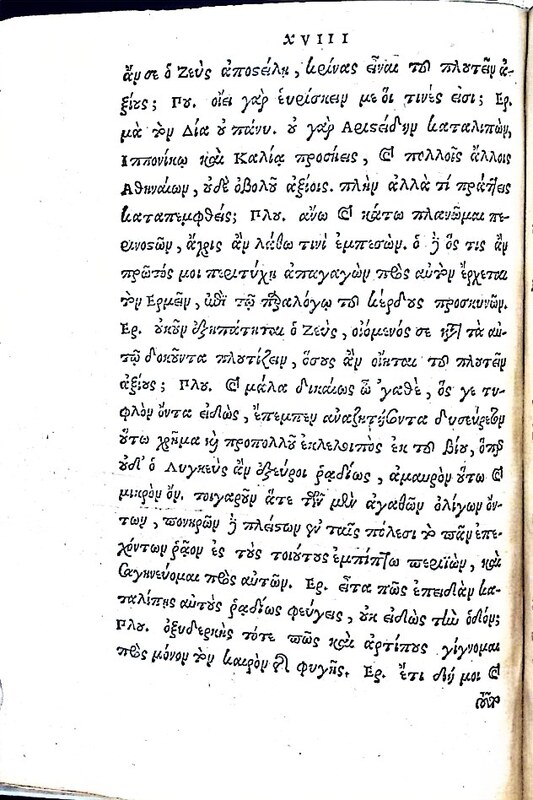 XVIII
ἄν σε ὁ Ζεὺς ἀποστείλῃ, κρίνας εἶναι τοῦ πλουτεῖν ἀ-
ξίους; Πλού. οἴει γὰρ εὑρίσκειν με οἵ τινές εἰσι; Ερ.
μὰ τὸν Δία οὐ πάνυ. οὐ γὰρ Αριστείδην καταλιπὼν,
Ιππονίκῳ καὶ Καλίᾳ προσήεις, καὶ πολλοῖς ἄλλοις
Αθηναίων, οὐδὲ ὀβολοῦ ἀξίοις. πλὴν ἀλλὰ τί πράττεις
καταπεμφθείς; Πλου. ἄνω καὶ κάτω πλανῶμαι πε-
ρινοστῶν, ἄχρις ἂν λάθω τινὶ ἐμπεσών. ὁ δὲ ὅς τις ἂν
πρῶτός μοι περιτύχῃ ἀπαγαγὼν πρὸς αὑτὸν ἔρχεται
τὸν Ερμῆν, ἐπὶ τῷ παραλόγῳ τοῦ κέρδους προσκυνῶν.
Ερ. οὐκοῦν ἐξηπάτηται ὁ Ζεὺς, οἰόμενός σε κατὰ τὰ αὐ-
τῷ δοκοῦντα πλουτίζειν, ὅσους ἂν οἴηται τοῦ πλουτεῖν
ἀξίους; Πλου. καὶ μάλα δικαίως ὦ ’γαθὲ, ὅς γε τυ-
φλὸν ὄντα εἰδὼς, ἔπεμπεν ἀναζητήσοντα δυσεύρετον
οὕτω χρῆμα καὶ προπολλοῦ ἐκλελοιπὸς ἐκ τοῦ βίου, ὅπερ
οὐδ’ ὁ Λυγκεὺς ἂν ἐξεύροι ῥᾳδίως, ἀμαυρὸν οὕτω καὶ
μικρὸν ὄν. τοιγαροῦν ἅτε τῶν μὲν ἀγαθῶν ὀλίγων ὄν-
των, πονηρῶν δὲ πλείστων ἐν ταῖς πόλεσι τὸ πᾶν ἐπε-
χόντων ῥᾷον ἐς τοὺς τοιούτους ἐμπίπτω περιϊὼν, καὶ
σαγηνεύομαι πρὸς αὐτῶν. Ερ. εἶτα πῶς ἐπειδὰν κα-
ταλίπῃς αὐτοὺς ῥᾳδίως φεύγεις, οὐκ εἰδὼς τὴν ὁδόν;
Πλου. ὀξυδερκὴς τότε πως καὶ ἀρτίπους γίγνομαι
πρὸς μόνον τὸν καιρὸν τῆς φυγῆς. Ερ. ἔτι δή μοι καὶ